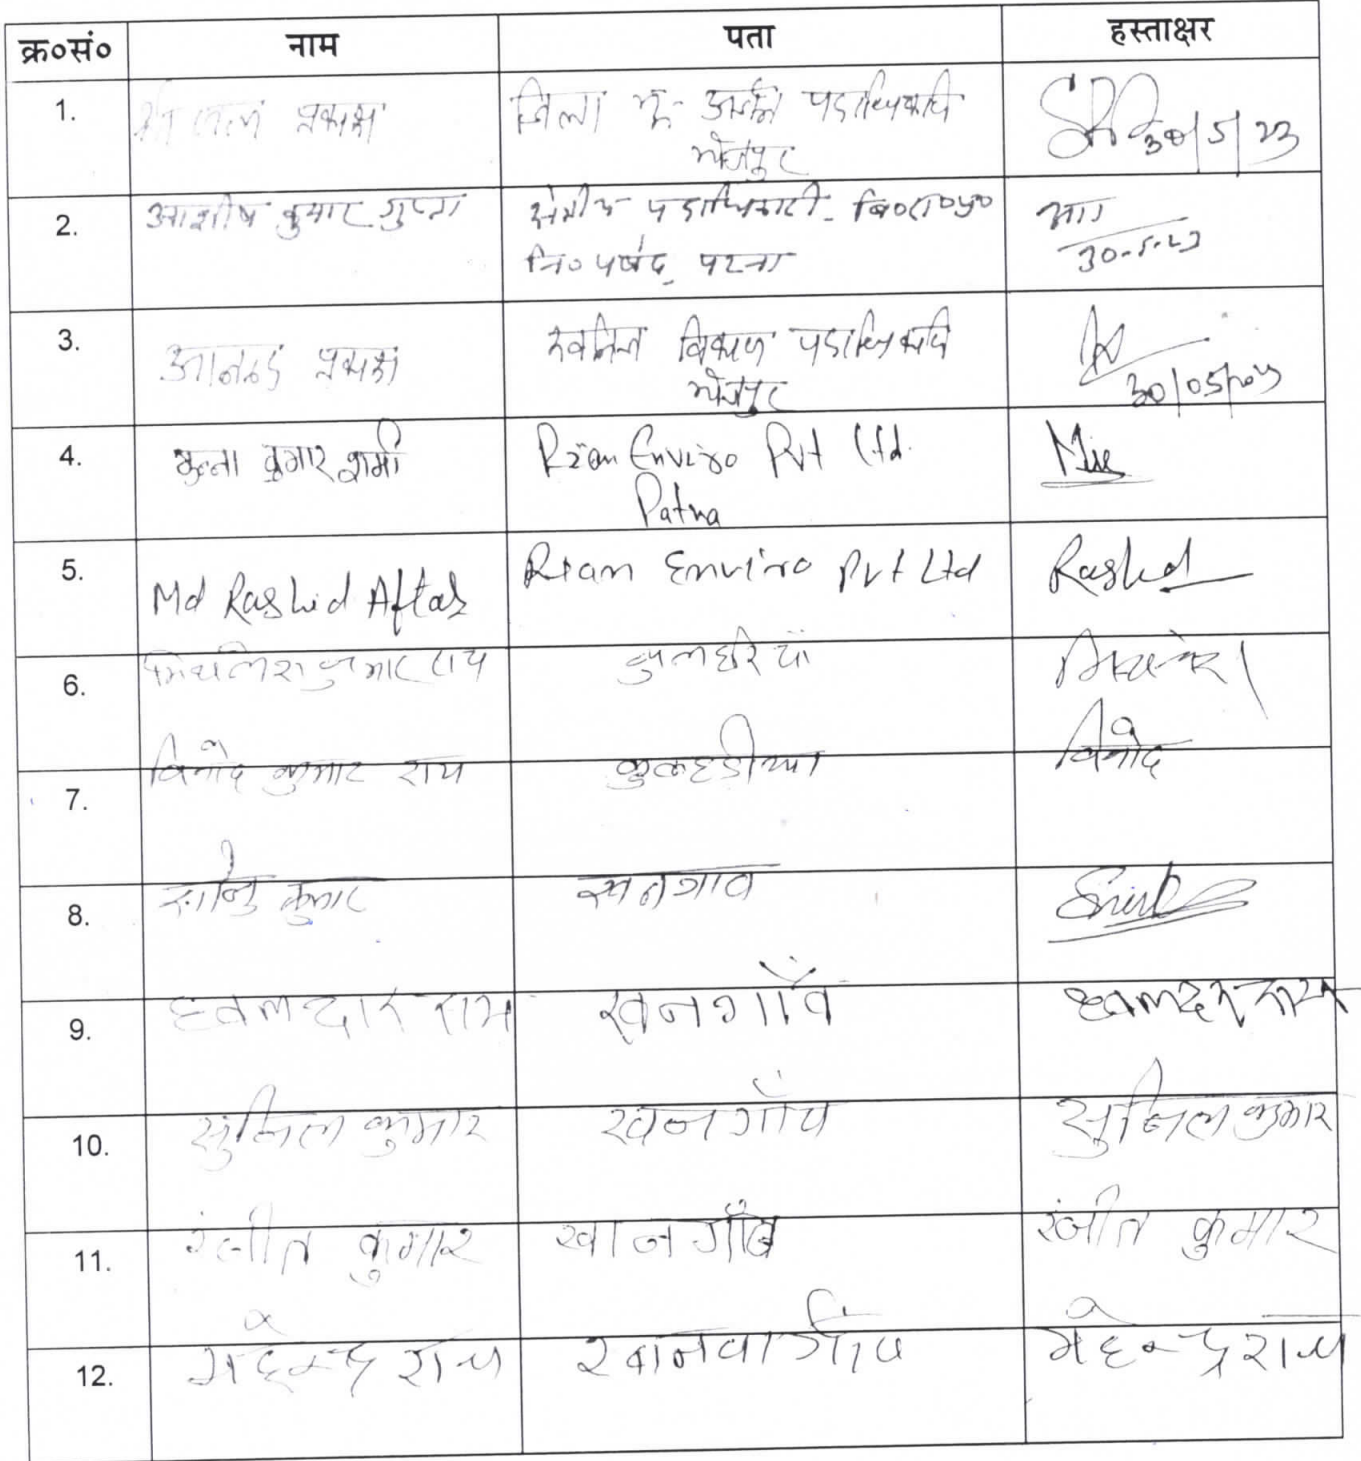 क्र०सं० नाम पता हस्ताक्षर
1. प्रकाश जिला भू-अर्जन पदाधिकारी 30/5/23
भोजपुर
2. आशीष कुमार गुप्ता क्षेत्रीय पदाधिकारी- बि०रा०प्र०
नि०पर्षद, पटना 30.5.23
3. आनन्द प्रकाश खनिज विकास पदाधिकारी
भोजपुर 30/05/2023
4. मुन्ना कुमार शर्मा Rian Enviro Pvt Ltd.
Patna
5. Md Rashid Aftab Rian Enviro Pvt Ltd Rashid
6. मिथलेश कुमार राय कुलहरियाँ मिथलेश
7. विनोद कुमार राय कुलहडीया विनोद
8. कुमार खनगाव
9. हवलदार राय खनगाँव हवलदार राय
10. सुनिल कुमार खनगाँव सुनिल कुमार
11. रंजीत कुमार खानगाँव रंजीत कुमार
12. महेन्द्र राय खनवा गाँव महेन्द्र राय